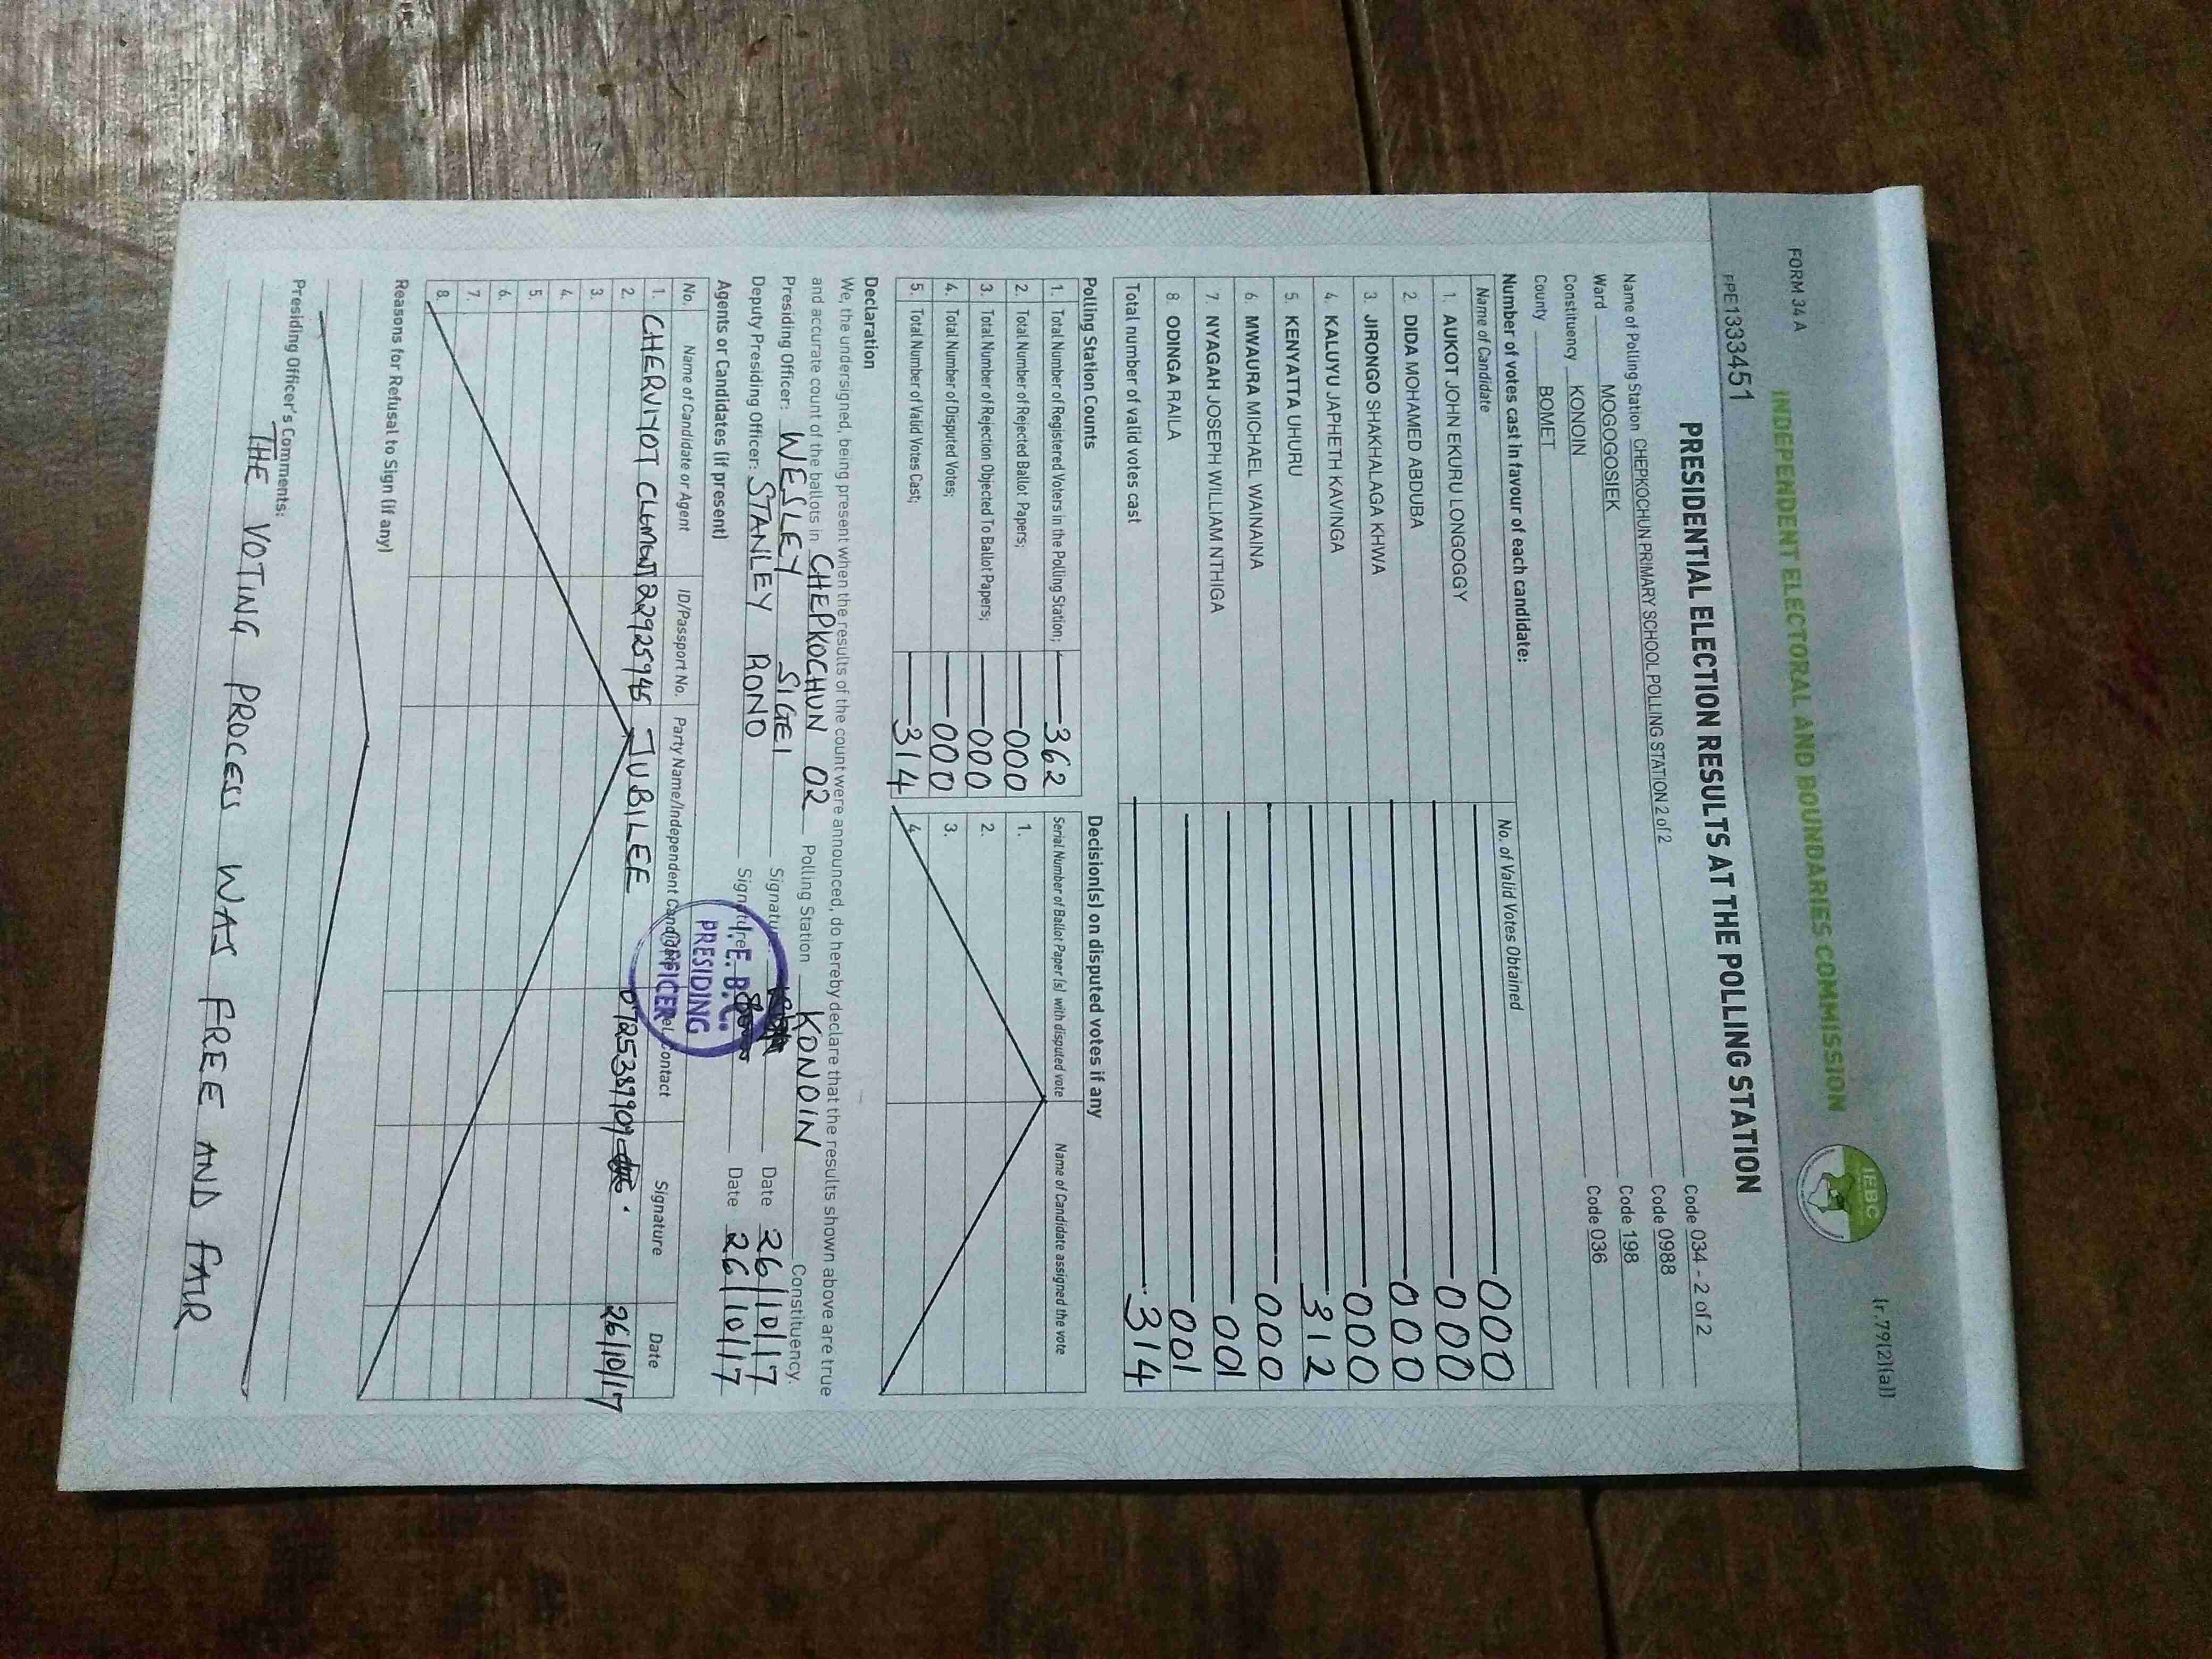 FORM 34 A
(r.79(2)(a))
INDEPENDENT ELECTORAL AND BOUNDARIES COMMISSION
IEBC
PRESIDENTIAL ELECTION RESULTS AT THE POLLING STATION
Name of Polling Station CHEPKOCHUN PRIMARY SCHOOL POLLING STATION 2 of 2 Code 034 - 2 of 2
Ward MOGOGOSIEK Code 0988
Constituency KONOIN Code 198
County BOMET Code 036
Number of votes cast in favour of each candidate:
Name of Candidate No. of Valid Votes Obtained
1. AUKOT JOHN EKURU LONGOGGY 000
2. DIDA MOHAMED ABDUBA 000
3. JIRONGO SHAKHALAGA KHWA 000
4. KALUYU JAPHETH KAVINGA 000
5. KENYATTA UHURU 312
6. MWAURA MICHAEL WAINAINA 000
7. NYAGAH JOSEPH WILLIAM NTHIGA 001
8. ODINGA RAILA 001
Total number of valid votes cast 314
Polling Station Counts
1. Total Number of Registered Voters in the Polling Station; 362
2. Total Number of Rejected Ballot Papers; 000
3. Total Number of Rejection Objected To Ballot Papers; 000
4. Total Number of Disputed Votes; 000
5. Total Number of Valid Votes Cast; 314
Decision(s) on disputed votes if any
Serial Number of Ballot Paper (s) with disputed vote Name of Candidate assigned the vote
1.
2.
3.
4.
Declaration
We, the undersigned, being present when the results of the count were announced, do hereby declare that the results shown above are true
and accurate count of the ballots in CHEPKOCHUN 02 Polling Station KONOIN Constituency.
Presiding Officer: WESLEY SIGEI Signature Date 26/10/17
Deputy Presiding Officer: STANLEY RONO Signature Date 26/10/17
I.E.B.C.
PRESIDING
OFFICER
Agents or Candidates (if present)
No. Name of Candidate or Agent ID/Passport No. Party Name/Independent Tel. Contact Signature Date
1. CHERUIYOT CLEMENT 22925945 JUBILEE 0725389909 26/10/17
2.
3.
4.
5.
6.
7.
8.
Reasons for Refusal to Sign (if any)
Presiding Officer's Comments:
THE VOTING PROCESS WAS FREE AND FAIR